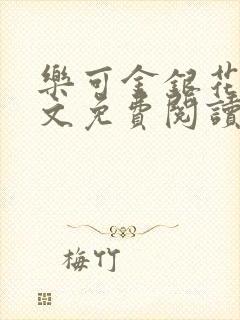 樂可金銀花
文免費閱讀
梅竹